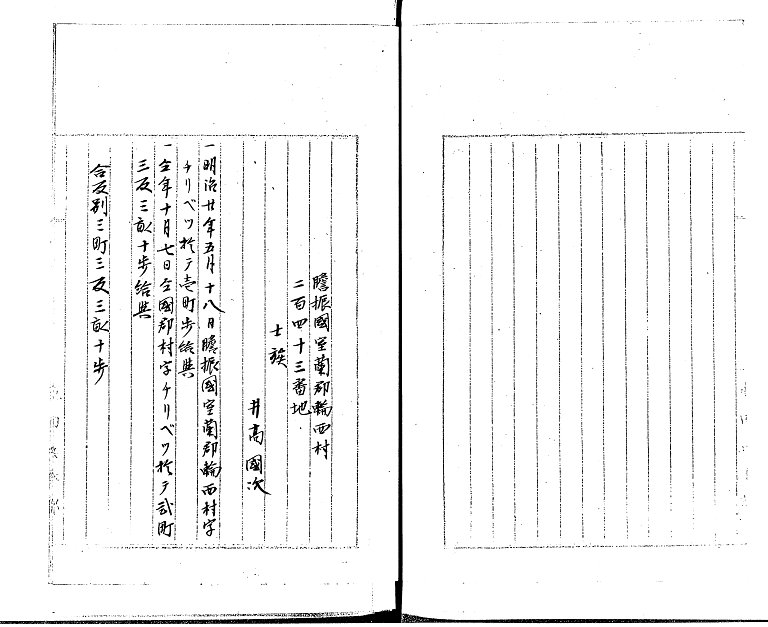 膽振國室蘭郡輪西村
二百四十三番地
士族
井高國次
一明治廿年五月十八日膽振國室蘭郡輪西村字
チリベツ於テ壱町歩給與
一仝年十月七日仝國郡村字チリベツ於テ弐町
三反三畝十歩給與
合反別三町三反三畝十歩